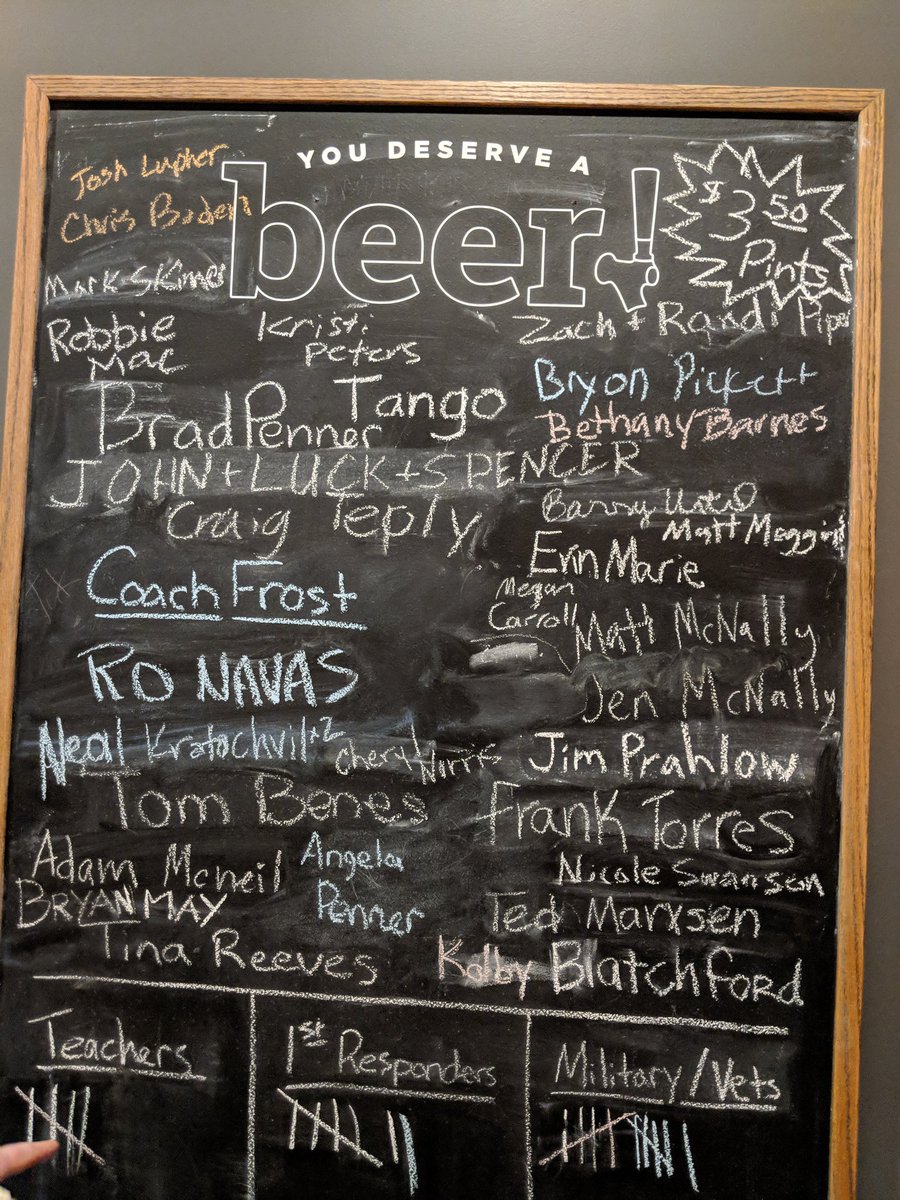 YOU DESERVE A
beer!
$3.50
Pints
Josh Lupher
Chris Boden
Mark Skimer
Robbie
Mac
Kristi
Peters
Zach + Randi Piper
Brad Penner
Tango
Bryon Pickett
Bethany Barnes
JOHN + LUCK + SPENCER
Craig Teply
Barry
Matt
Erin Marie
Coach Frost
Megan
Carroll
Matt McNally
RO NAVAS
Jen McNally
Neal Kratochvil +2
Cheryl Norris
Jim Prahlow
Tom Benes
Frank Torres
Adam Mcneil
Angela
Penner
Nicole Swansen
BRYAN MAY
Ted Marxsen
Tina Reeves
Kolby Blatchford
Teachers
1st Responders
Military/Vets